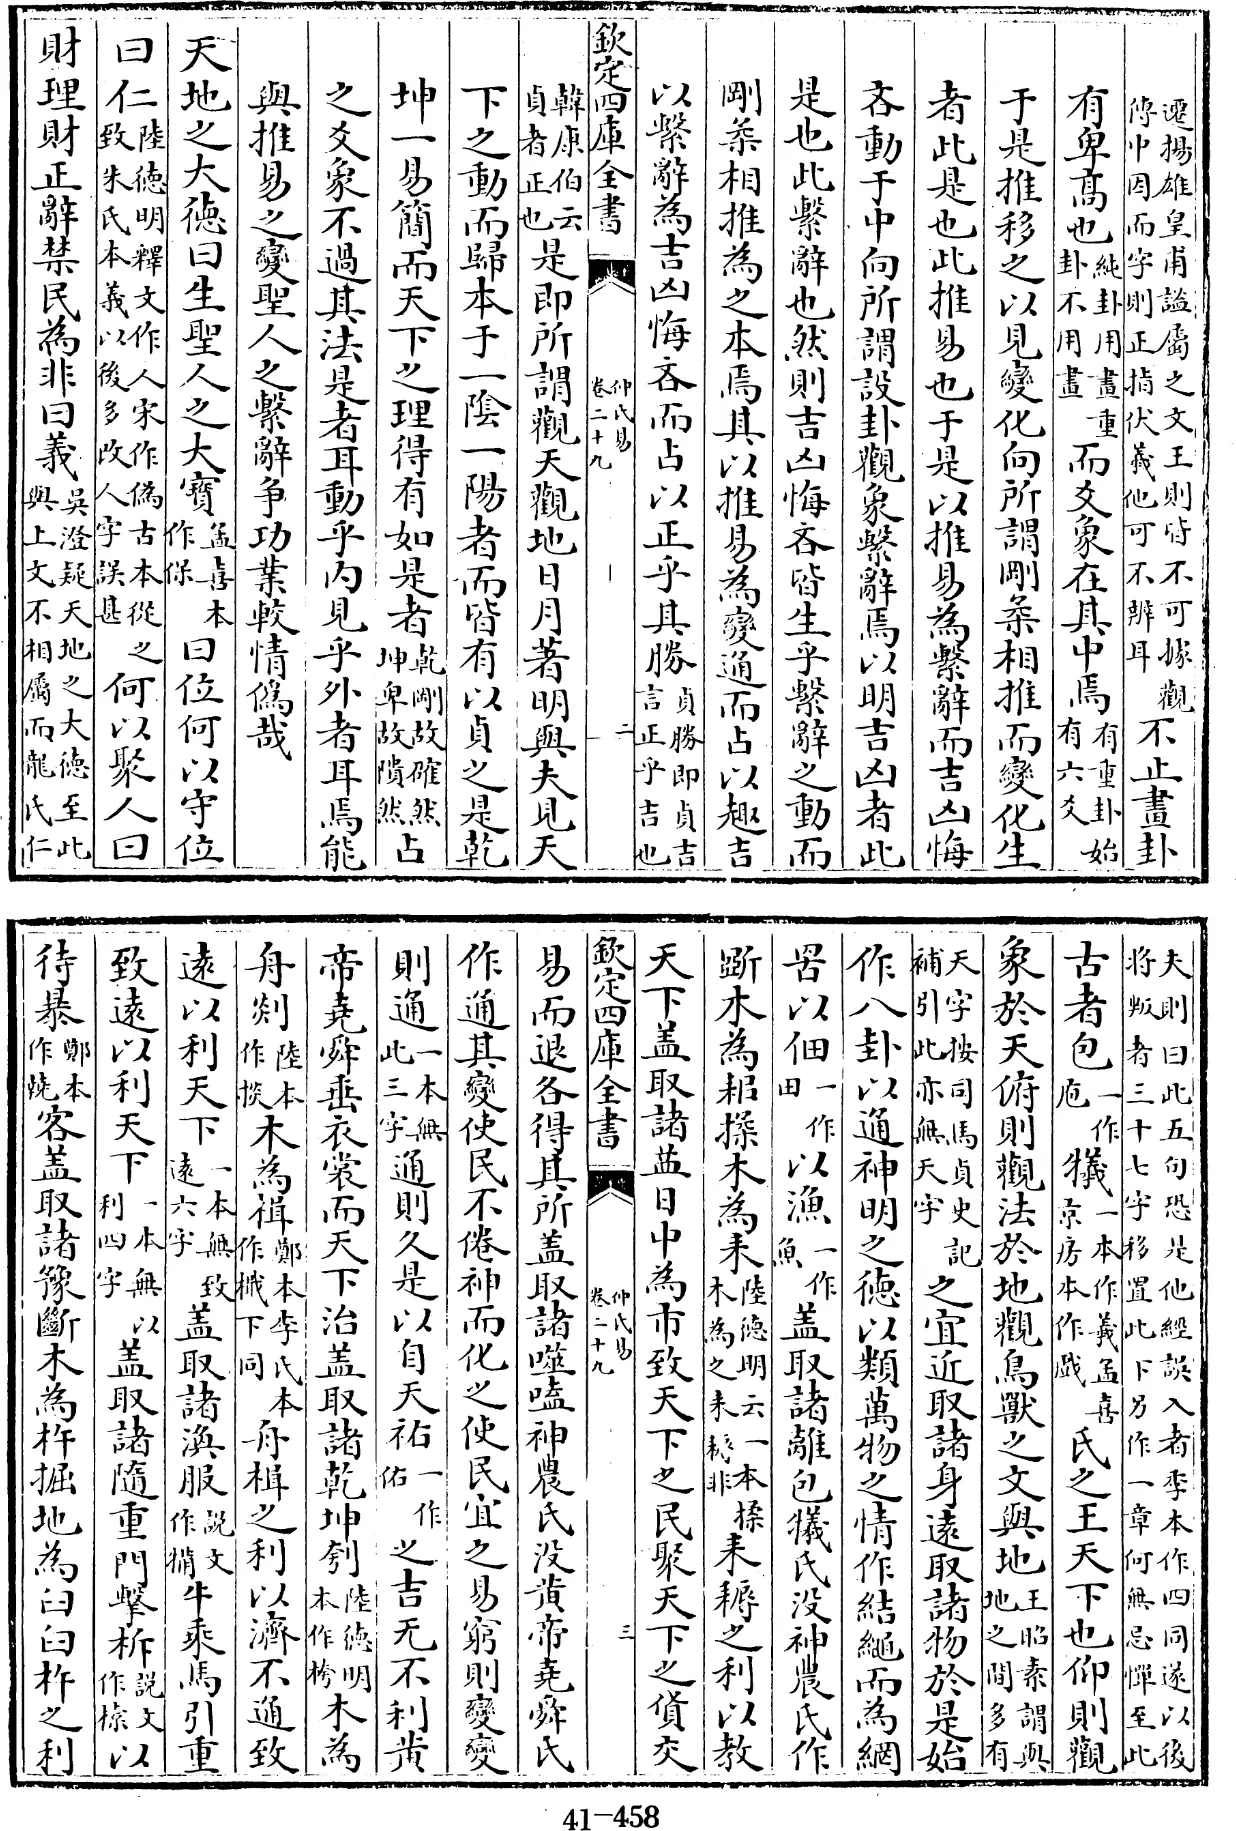 遷揚雄皇甫謐屬之文王則皆不可據觀傳中因而字則正指伏羲他可不辨耳不止畫卦
有卑高也純卦用畫重卦不用畫而爻象在其中焉有重卦始有六爻
于是推移之以見變化向所謂剛柔相推而變化生
者此是也此推易也于是以推易為繫辭而吉凶悔
吝動于中向所謂設卦觀象繫辭焉以明吉凶者此
是也此繫辭也然則吉凶悔吝皆生乎繫辭之動而
剛柔相推為之本焉其以推易為變通而占以趣吉
以繫辭為吉凶悔吝而占以正乎其勝貞勝即貞吉言正乎吉也
欽定四庫全書 仲氏易卷二十九 二
韓康伯云貞者正也是即所謂觀天觀地日月著明與夫見天
下之動而歸本于一陰一陽者而皆有以貞之是乾
坤一易簡而天下之理得有如是者乾剛故確然坤卑故隤然占
之爻象不過其法是者耳動乎内見乎外者耳焉能
與推易之變聖人之繫辭争功業較情偽哉
天地之大徳曰生聖人之大寳孟喜本作保曰位何以守位
曰仁陸徳明釋文作人宋作偽古本從之致朱氏本義以後多改人字誤甚何以聚人曰
財理財正辭禁民為非曰義吳澄疑天地之大徳至此與上文不相屬而龍氏仁
夫則曰此五句恐是他經誤入者李本作四同遂以後將叛者三十七字移置此下另作一章何無忌憚至此
古者包一作庖犧一本作羲孟喜京房本作戲氏之王天下也仰則觀
象於天俯則觀法於地觀鳥獸之文與地王昭素謂與地之間多有
天字按司馬貞史記補引此亦無天字之宜近取諸身遠取諸物於是始
作八卦以通神明之德以類萬物之情作結繩而為網
罟以佃一作田以漁一作魚盖取諸離包犧氏没神農氏作
斲木為耜揉木為耒陸德明云一本揉木為之耒耨非耒耨之利以教
天下盖取諸益日中為市致天下之民聚天下之貨交
欽定四庫全書 仲氏易卷二十九 三
易而退各得其所盖取諸噬嗑神農氏没黄帝堯舜氏
作通其變使民不倦神而化之使民宜之易窮則變變
則通一本無此三字通則久是以自天祐一作佑之吉无不利黄
帝堯舜垂衣裳而天下治盖取諸乾坤刳陸德明本作挎木為
舟剡陸本作掞木為楫鄭本李氏本作檝下同舟楫之利以濟不通致
遠以利天下一本無致遠六字盖取諸渙服說文作犕牛乘馬引重
致遠以利天下一本無以利四字盖取諸隨重門擊柝說文作㯓以
待暴鄭本作虣客盖取諸豫斷木為杵掘地為臼臼杵之利
41-458